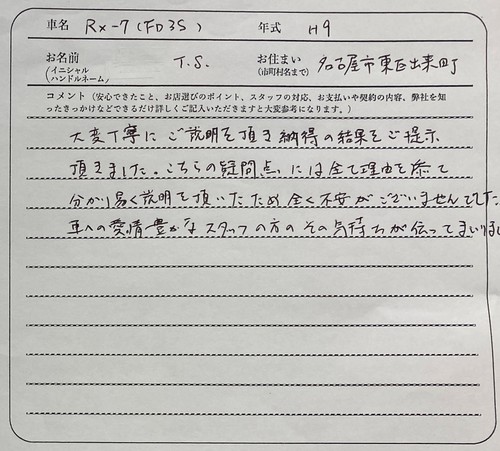 車名 RX-7(FD3S) 年式 H9
お名前 (イニシャル ハンドルネーム) T.S. お住まい (市町村名まで) 名古屋市東区出来町
コメント(安心できたこと、お店選びのポイント、スタッフの対応、お支払いや契約の内容、弊社を知
ったきっかけなどできるだけ詳しくご記入いただきますと大変参考になります。)
大変丁寧にご説明を頂き納得の結果をご提示
頂きました。こちらの疑問点には全て理由を添て
分かり易く説明を頂いたため全く不安がございませんでした
車への愛情豊かなスタッフの方のその気持ちが伝ってまいりまし